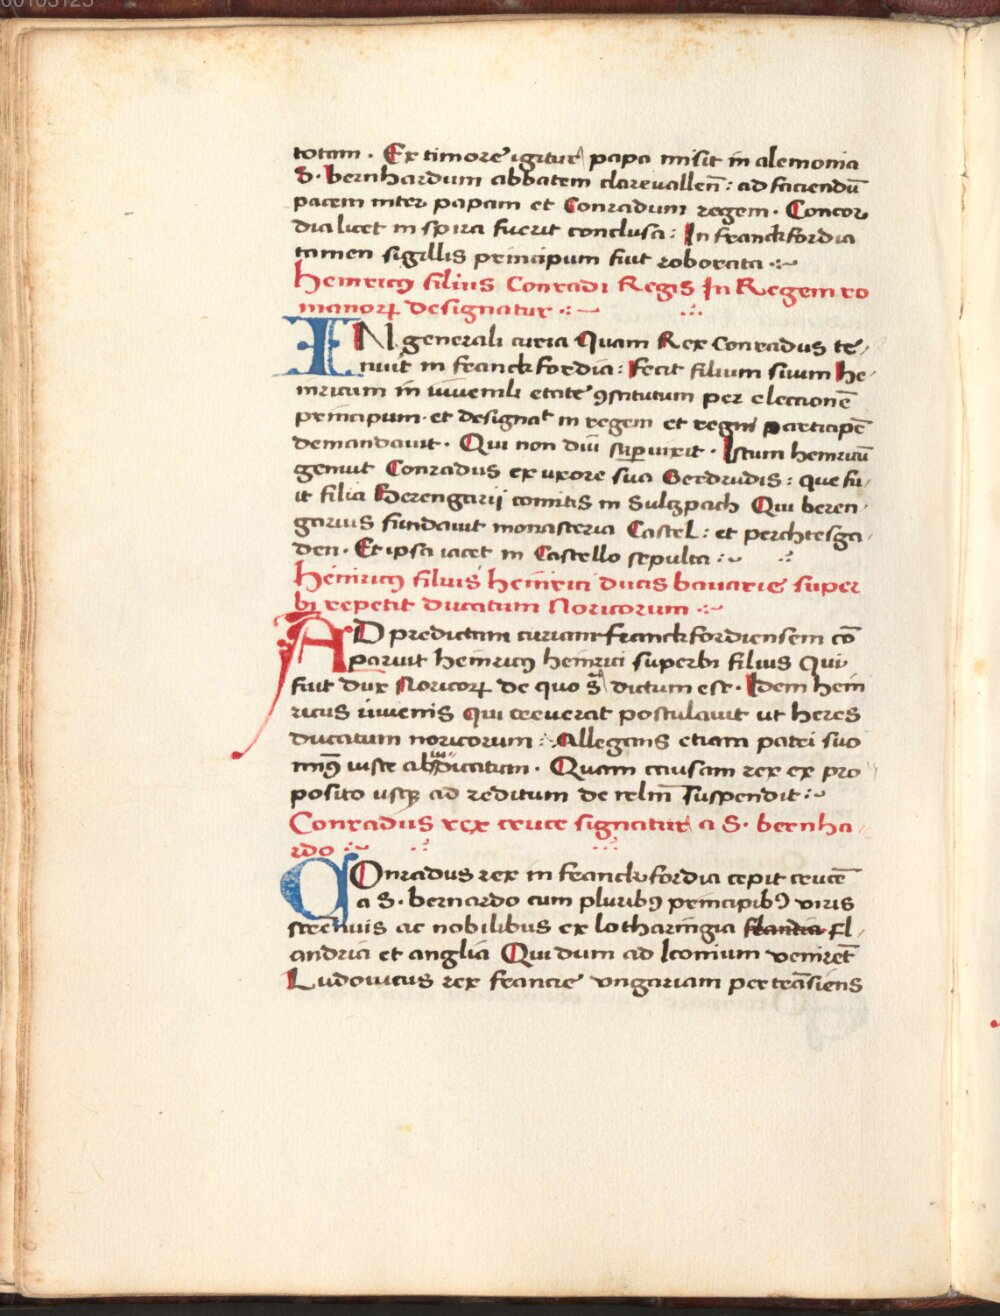 00103125
totam . Ex timore igitur papa misit in alemonia
S. bernhardum abbatem clareuallen̄ : ad faciendū
pacem inter papam et Conradum regem . Concor
dia licet in spira fuerit conclusa : In franckfordia
tamen sigillis principum fuit roborata .
heinricꝰ filius Conradi Regis In Regem ro
manoꝝ designatur .
IN generali curia Quam Rex Conradus te
nuit in franckfordia : Fecit filium suum he
inricum in iuuenili etate ꝯstitutum per eleccionē
principum . et designat in regem et regni participē
demandauit . Qui non diu superuixit . Istum heinricū
genuit Conradus ex uxore sua Gerdrudis : que fu
it filia Berengarii comitis in Sulczpach Qui beren
garius fundauit monasteria Castel : et perchtesga
den . Et ipsa iacet in Castello sepulta :
heinricꝰ filius heinrici ducis bauarie super
bi repetit ducatum Noricorum
AD predictam curiam franckfordiensem cō
paruit heinricꝰ heinrici superbi filius Qui
fuit dux Noricoꝝ de quo sᵃ dictum est . Idem hein
ricus iuuenis qui creuerat postulauit ut heres
ducatum noricorum : Allegans etiam patri suo
minꝰ iuste abiudicatum . Quam causam rex ex pro
posito usqꝫ ad reditum de relm̄ suspendit :
Conradus rex cruce signatur a S. bernha
rdo
COnradus rex in franckfordia cepit crucē
a S. bernardo cum pluribꝰ principibꝰ viris
strenuis ac nobilibus ex lotharingia flandria fl
andria et anglia Qui dum ad Iconium venirēt
Ludouicus rex francie vngariam per trāsiens